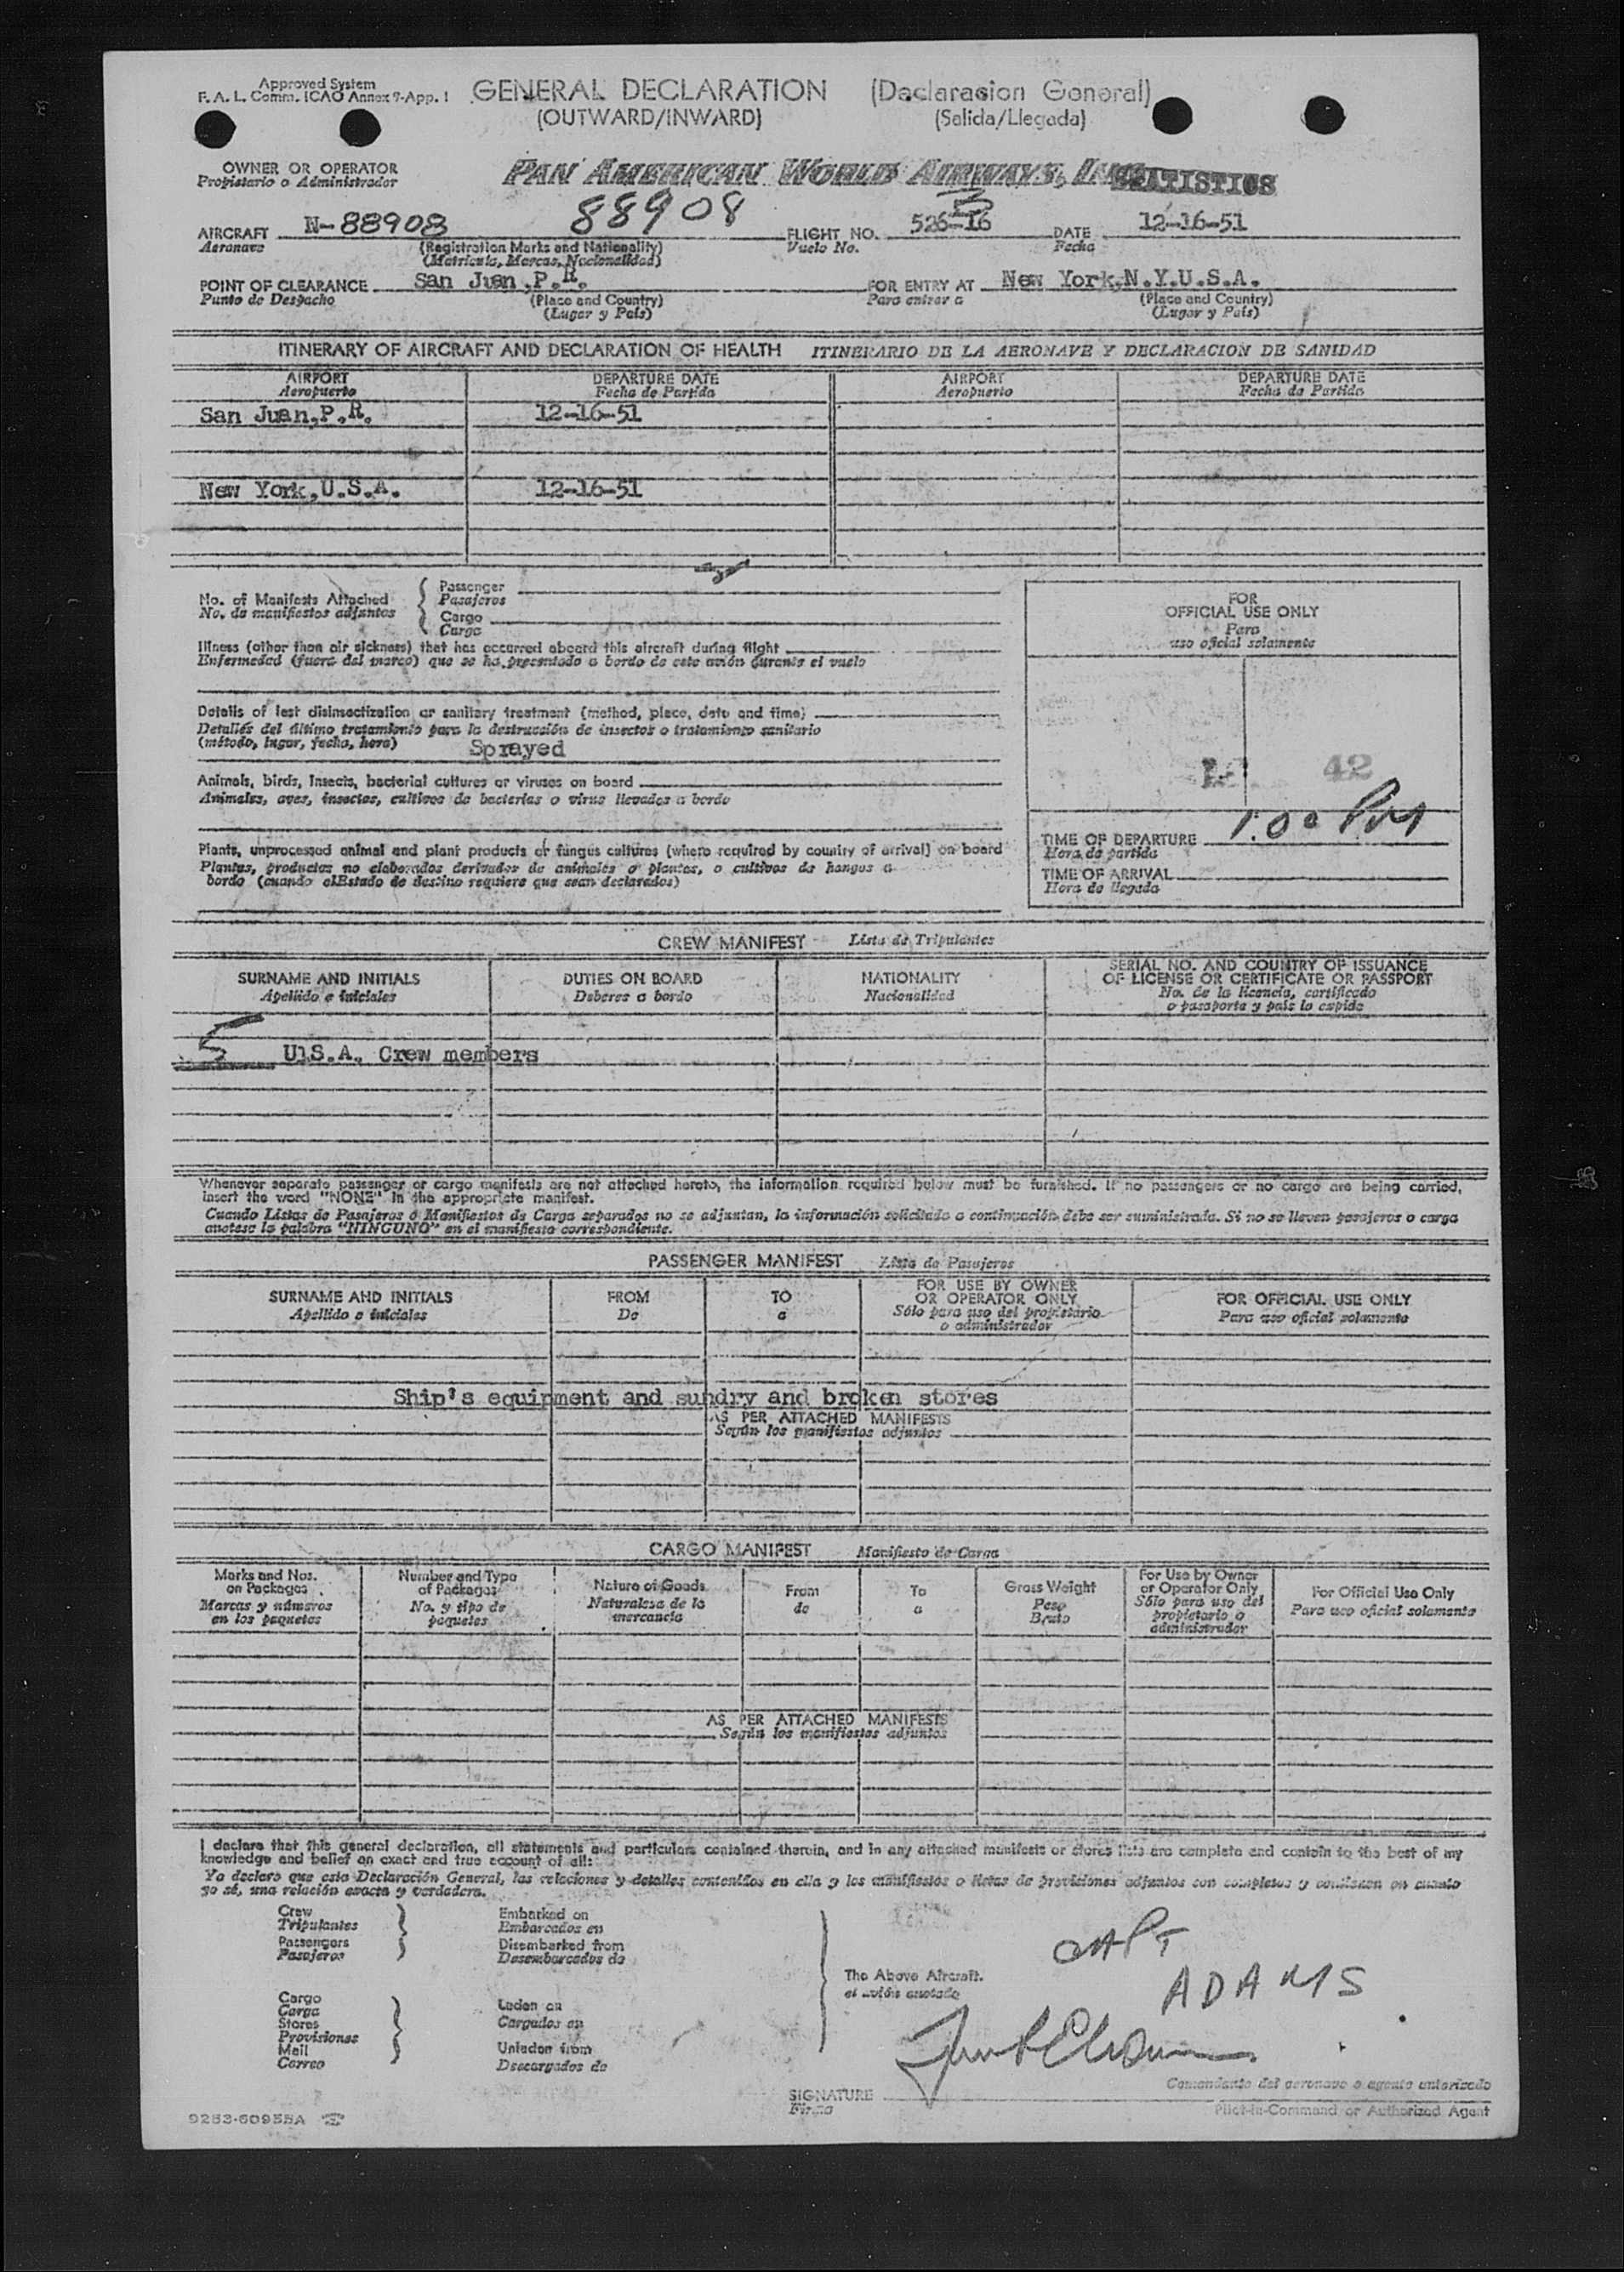 Approved System
F. A. L. Comm. ICAO Annex 9-App. 1
GENERAL DECLARATION (Declaracion General)
(OUTWARD/INWARD) (Salida/Llegada)
OWNER OR OPERATOR
Propietario o Administrador
PAN AMERICAN WORLD AIRWAYS, INC.
STATISTICS
88908
AIRCRAFT N-88908 FLIGHT NO. 526-16 DATE 12-16-51
Aeronave (Registration Marks and Nationality) Vuelo No. Fecha
(Matricula, Marcas, Nacionalidad)
POINT OF CLEARANCE San Juan,P.R. FOR ENTRY AT New York,N.Y.U.S.A.
Punto de Despacho (Place and Country) Para entrar a (Place and Country)
(Lugar y Pais) (Lugar y Pais)
ITINERARY OF AIRCRAFT AND DECLARATION OF HEALTH ITINERARIO DE LA AERONAVE Y DECLARACION DE SANIDAD
AIRPORT DEPARTURE DATE AIRPORT DEPARTURE DATE
Aeropuerto Fecha de Partida Aeropuerto Fecha de Partida
San Juan,P.R. 12-16-51
New York,U.S.A. 12-16-51
No. of Manifests Attached
No. de manifiestos adjuntos
Passenger
Pasajeros
Cargo
Carga
Illness (other than air sickness) that has occurred aboard this aircraft during flight
Enfermedad (fuera del mareo) que se ha presentado a bordo de este avión durante el vuelo
Details of last disinsectization or sanitary treatment (method, place, date and time)
Detalles del último tratamiento para la destrucción de insectos o tratamiento sanitario
(método, lugar, fecha, hora) Sprayed
Animals, birds, insects, bacterial cultures or viruses on board
Animales, aves, insectos, cultivos de bacterias o virus llevados a bordo
Plants, unprocessed animal and plant products or fungus cultures (where required by country of arrival) on board
Plantas, productos no elaborados derivados de animales o plantas, o cultivos de hongos a
bordo (cuando elEstado de destino requiere que sean declarados)
FOR
OFFICIAL USE ONLY
Para
uso oficial solamente
42
TIME OF DEPARTURE 1:00 PM
Hora de partida
TIME OF ARRIVAL
Hora de llegada
CREW MANIFEST Lista de Tripulantes
SURNAME AND INITIALS DUTIES ON BOARD NATIONALITY SERIAL NO. AND COUNTRY OF ISSUANCE
OF LICENSE OR CERTIFICATE OR PASSPORT
Apellido e iniciales Deberes a bordo Nacionalidad No. de la licencia, certificado
o pasaporte y pais lo expide
5 U1S.A. Crew members
Whenever separate passenger or cargo manifests are not attached hereto, the information required below must be furnished. If no passengers or no cargo are being carried,
insert the word "NONE" in the appropriate manifest.
Cuando Listas de Pasajeros ó Manifiestos de Carga separados no se adjuntan, la información solicitada a continuación debe ser suministrada. Si no se lleven pasajeros o carga
anotese la palabra "NINGUNO" en el manifiesto correspondiente.
PASSENGER MANIFEST Lista de Pasajeros
SURNAME AND INITIALS FROM TO FOR USE BY OWNER
OR OPERATOR ONLY FOR OFFICIAL USE ONLY
Apellido e iniciales De a Sólo para uso del propietario
o administrador Para uso oficial solamente
Ship's equipment and sundry and broken stores
AS PER ATTACHED MANIFESTS
Según los manifiestos adjuntos
CARGO MANIFEST Manifiesto de Carga
Marks and Nos.
on Packages
Marcas y números
en los paquetes
Number and Type
of Packages
No. y tipo de
paquetes
Nature of Goods
Naturaleza de la
mercancia
From
de
To
a
Gross Weight
Peso
Bruto
For Use by Owner
or Operator Only
Sólo para uso del
propietario o
administrador
For Official Use Only
Para uso oficial solamente
AS PER ATTACHED MANIFESTS
Según los manifiestos adjuntos
I declare that this general declaration, all statements and particulars contained therein, and in any attached manifests or stores lists are complete and contain to the best of my
knowledge and belief an exact and true account of all:
Yo declaro que esta Declaración General, las relaciones y detalles contenidos en ella y los manifiestos o listas de provisiones adjuntos son completos y contienen en cuanto
yo sé, una relación exacta y verdadera.
Crew
Tripulantes
Passengers
Pasajeros
Embarked on
Embarcados en
Disembarked from
Desembarcados de
Cargo
Carga
Stores
Provisiones
Mail
Correo
Laden on
Cargados en
Unladen from
Descargados de
The Above Aircraft.
el avión anotado
CAPT
ADAMS
SIGNATURE
Firma
Comandante del aeronave o agente autorizado
Pilot-in-Command or Authorized Agent
9253-60955A